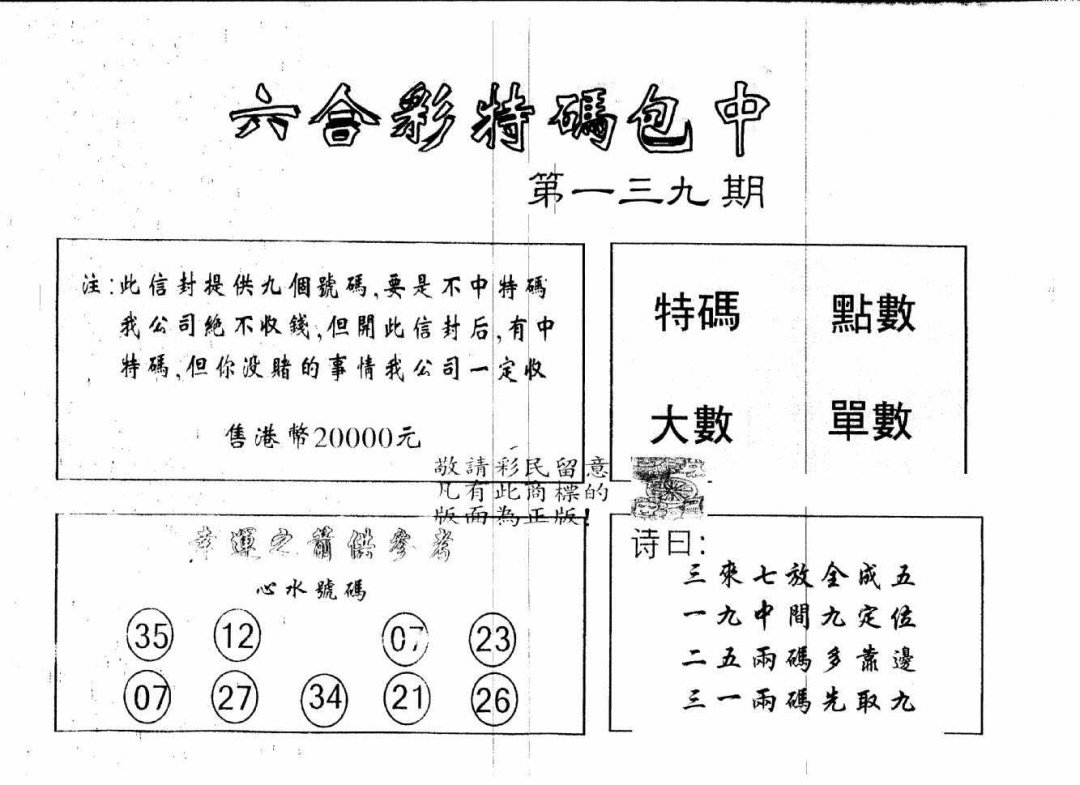 六合彩特碼包中
第一三九期
注:此信封提供九個號碼,要是不中特碼
我公司絕不收錢,但開此信封后,有中
特碼,但你没賭的事情我公司一定收
售港幣20000元
特碼 點數
大數 單數
敬請彩民留意
凡有此商標的
版面為正版!
幸運之箭供參考
心水號碼
35 12 07 23
07 27 34 21 26
诗曰:
三來七放全成五
一九中間九定位
二五兩碼多靠邊
三一兩碼先取九